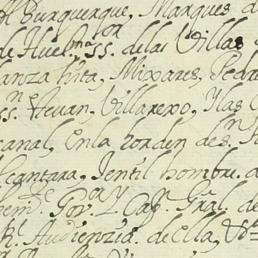 Alburquerque, Marques d
de Huelma SS.or delas Villas
anza hita, Mixares, Pedro
SS.n Stevan, Villarexo, Ylas C
canal, Enla horden de S.n
lcantara, Jentil hombre, d
Gov.or Y Cap.n Gral. de
R.l Audienzia. de ella,